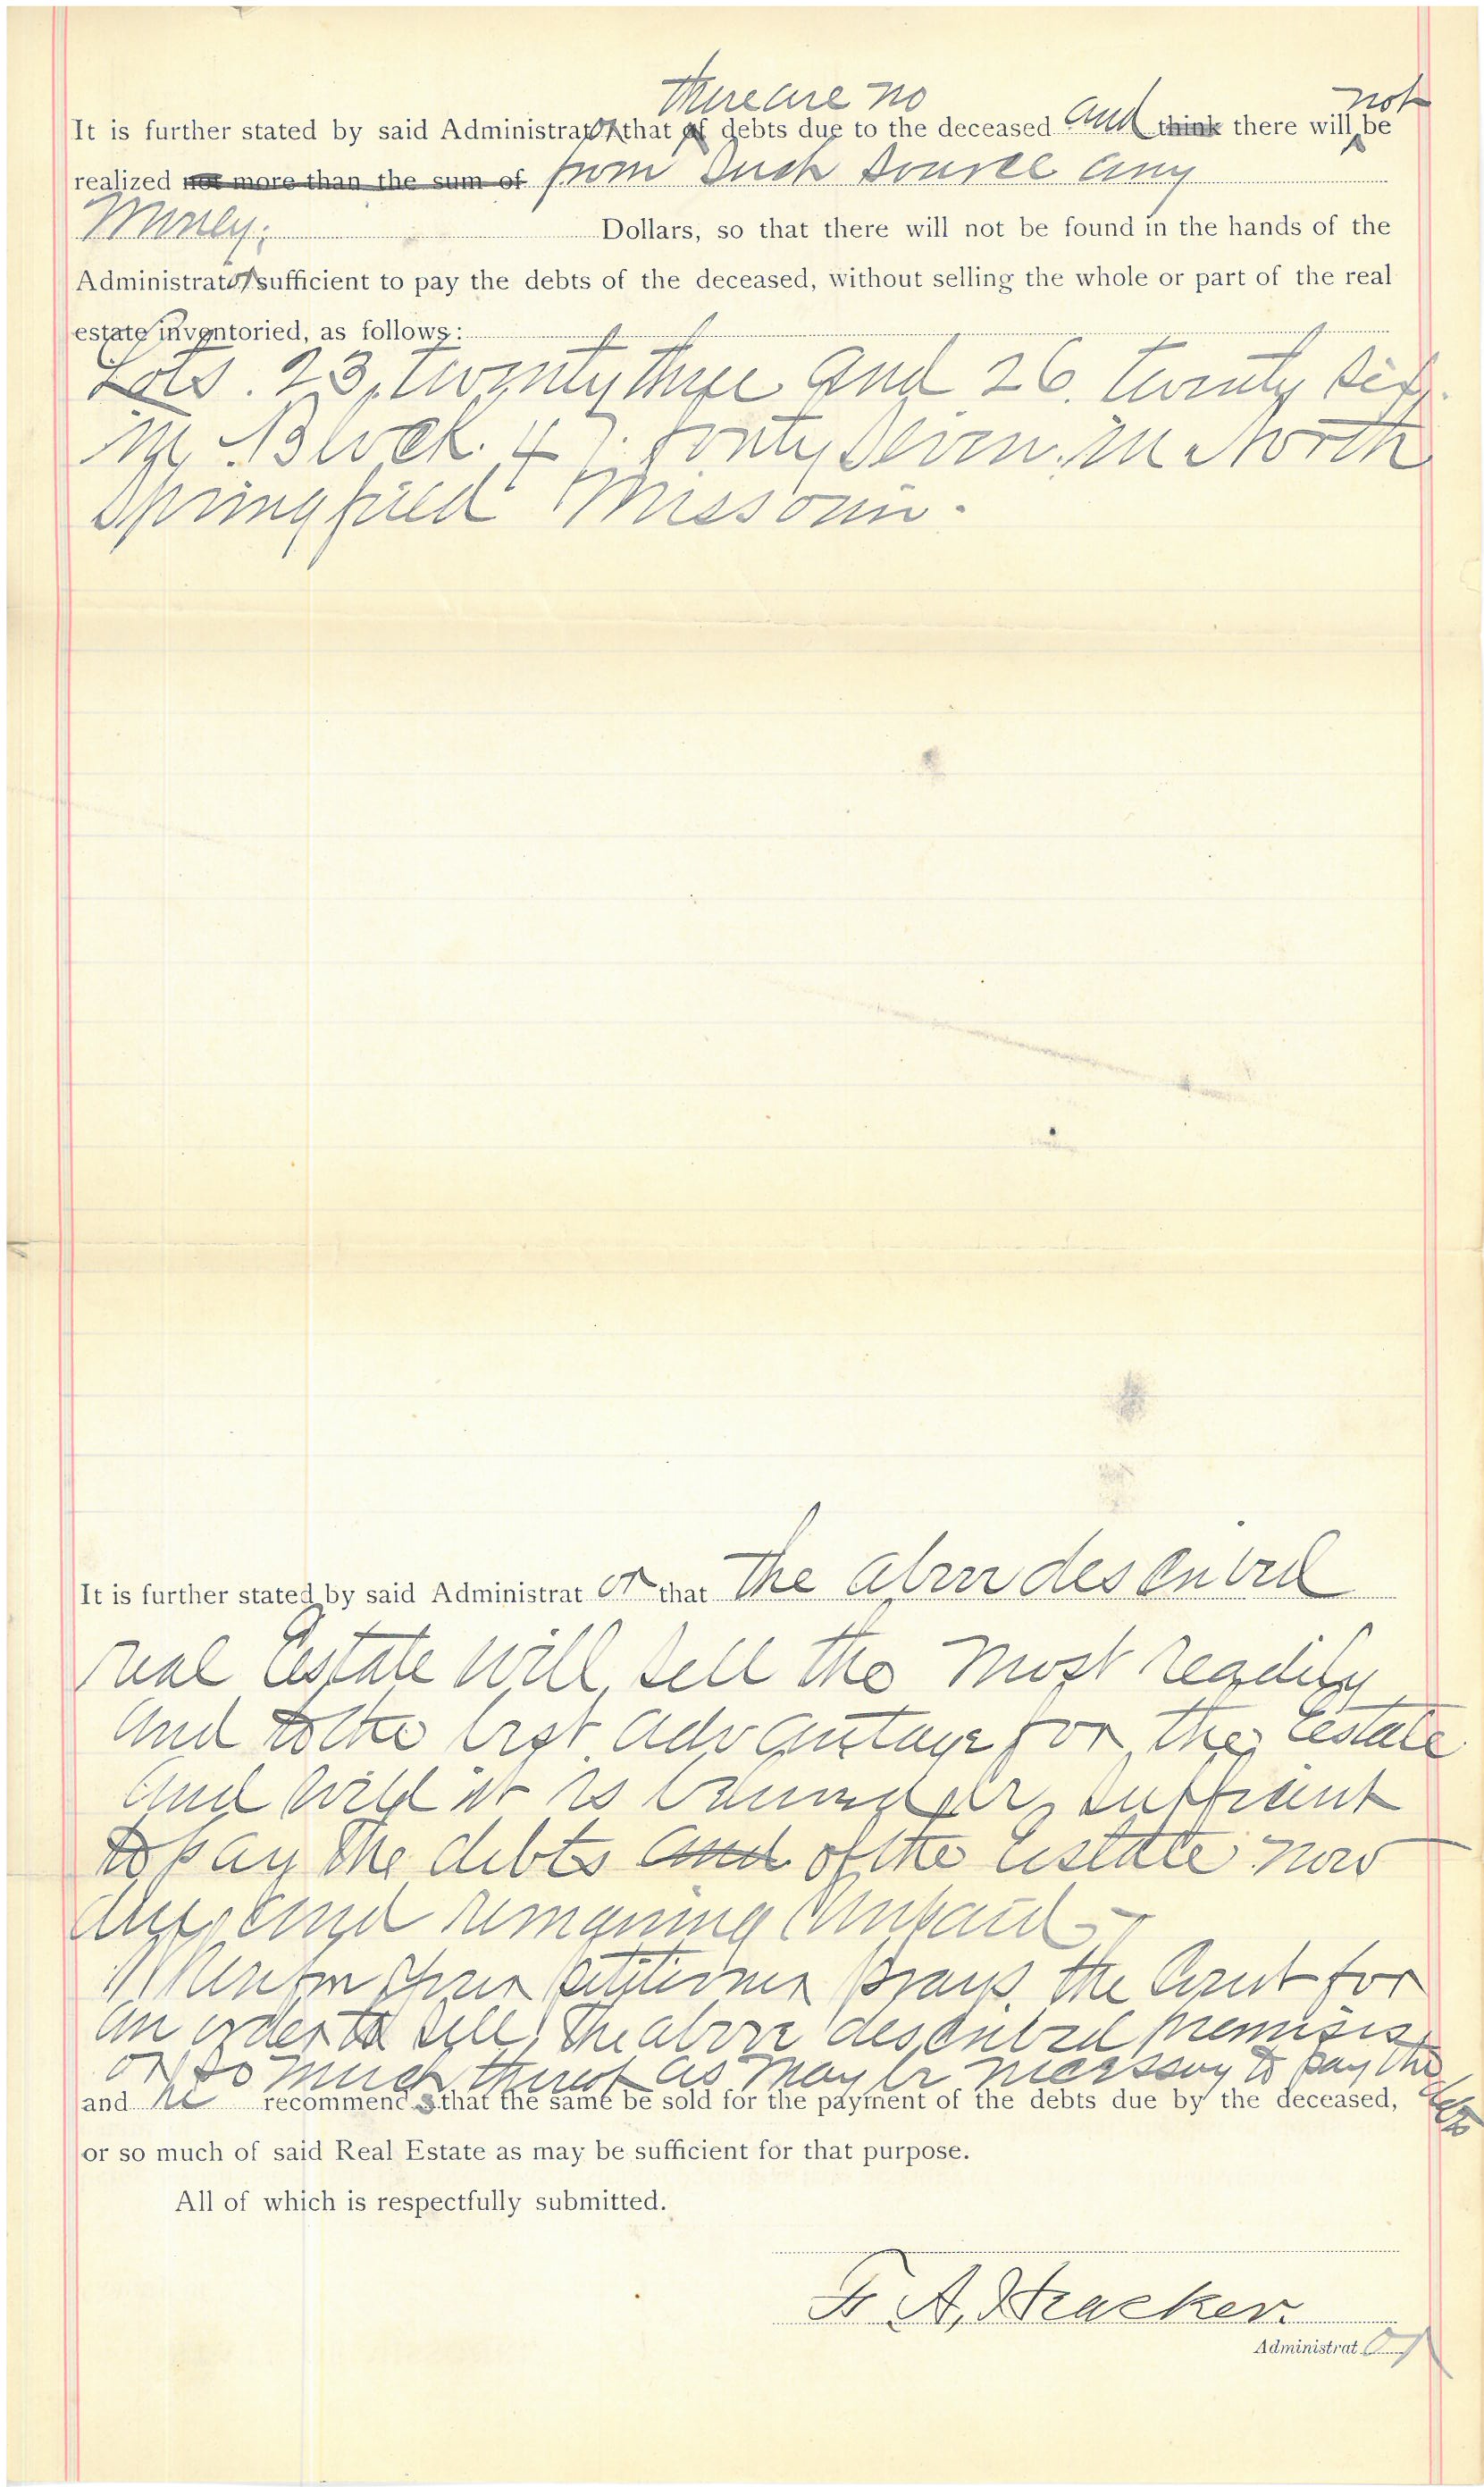 there are no
It is further stated by said Administrator that of debts due to the deceased and think there will not be
realized not more than the sum of from such source any
Money. Dollars, so that there will not be found in the hands of the
Administrator sufficient to pay the debts of the deceased, without selling the whole or part of the real
estate inventoried, as follows:
Lots. 23, twenty three and 26. twenty six.
in Block. 47. forty seven. in North
Springfield Missouri.
It is further stated by said Administrator that the above described
real Estate will sell the most readily
and to the best advantage for the Estate
and will it is sufficient
to pay the debts and of the Estate now
due and remaining unpaid
Wherefor your petitioner prays the Court for
an order to sell the above described premises
or so much thereof as may be necessary to pay the debts
and he recommends that the same be sold for the payment of the debts due by the deceased,
or so much of said Real Estate as may be sufficient for that purpose.
All of which is respectfully submitted.
F. A. Heacker.
Administrator